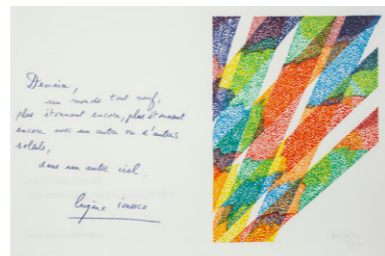 Demain,
un monde tout neuf,
plus étonnant encore, plus étonnant
encore avec un autre ou d'autres
soleils,
dans un autre ciel.
Eugène Ionesco